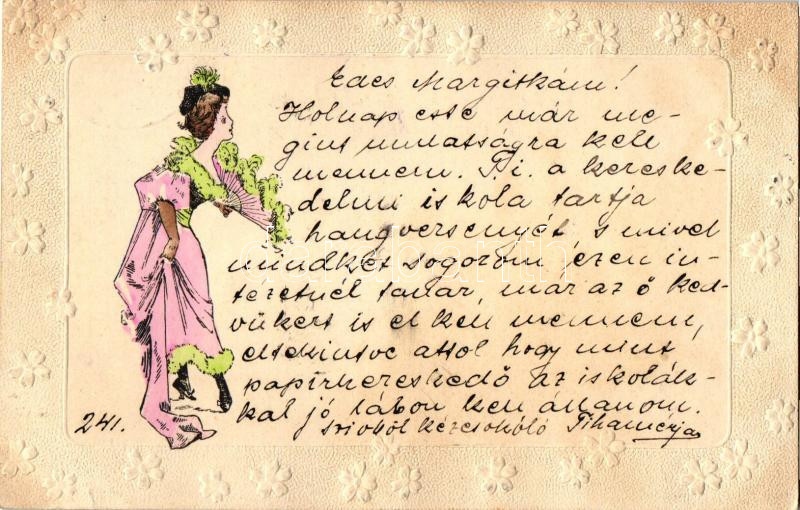 Edes Margitkám!
Holnap este már me-
gint mulatságra kell
mennem. Pi. a kereske-
delmi iskola tartja
hangversenyét s mivel
mindkét sogorom ezen in-
tézetnél tanár, már az ő ked-
vükért is el kell mennem,
eltekintve attol hogy mint
papírkereskedő az iskolák-
kal jó lábon kell állanom.
241. szivből kézcsokoló Tihamérja